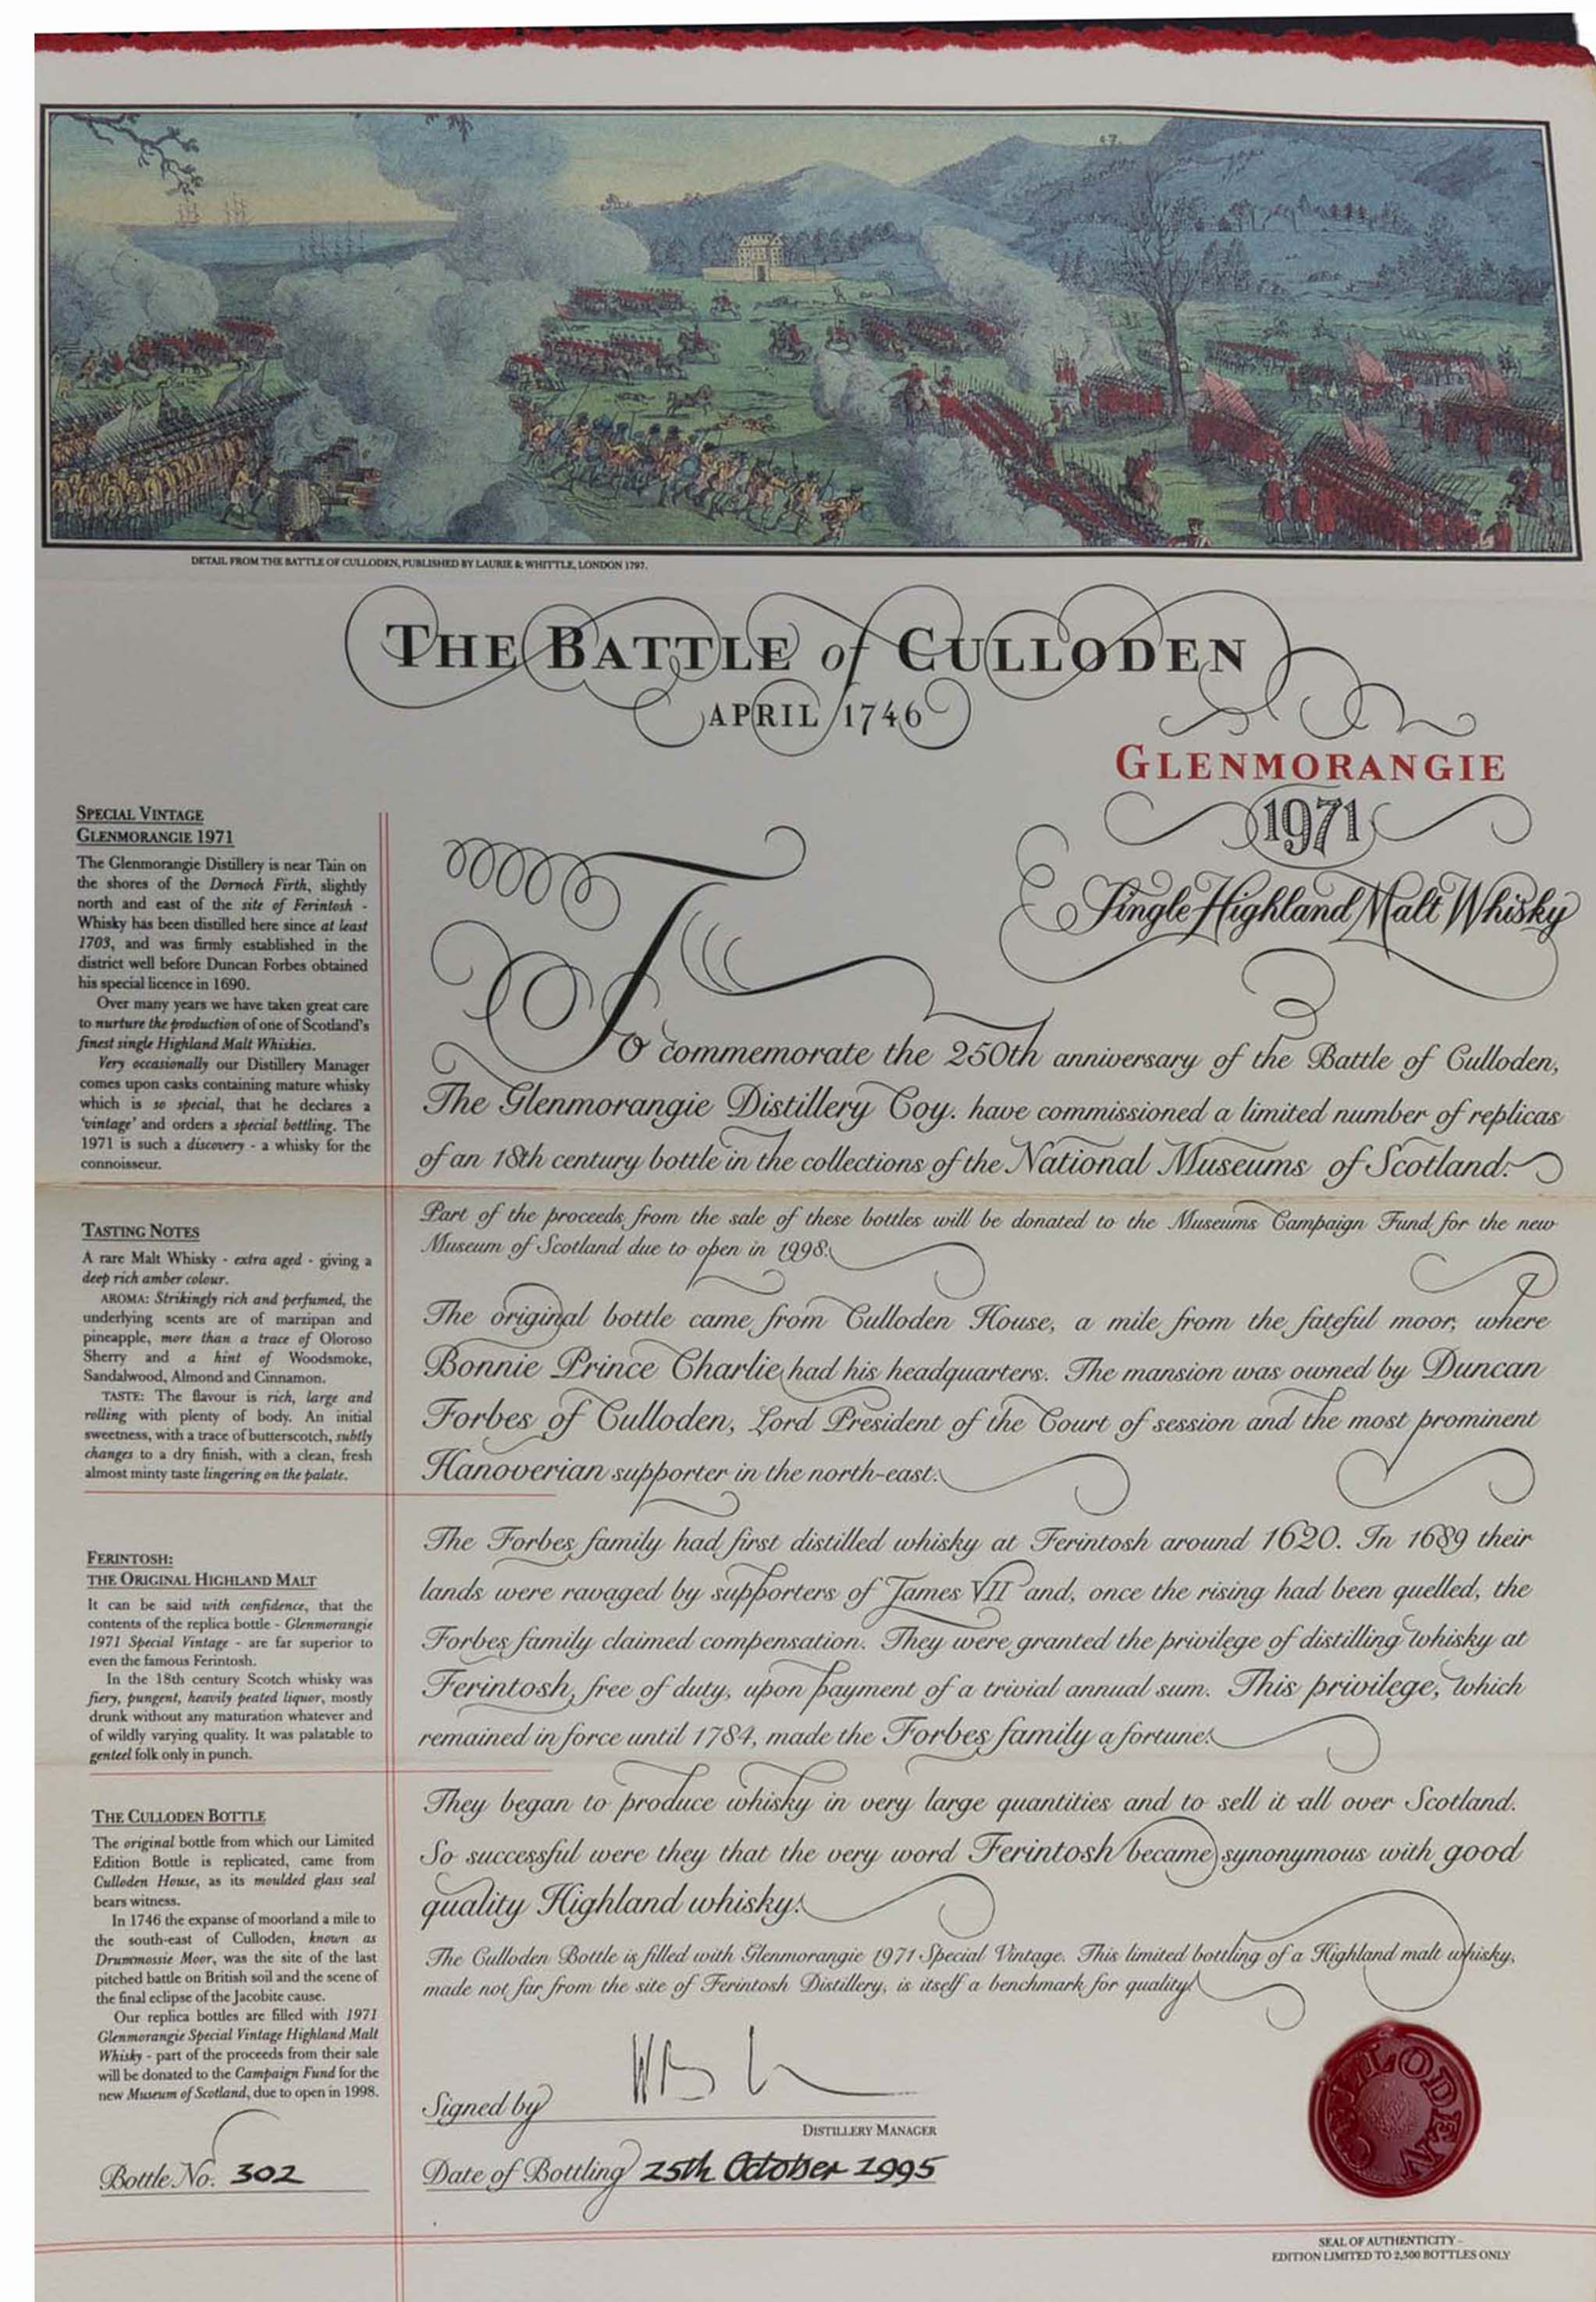 DETAIL FROM THE BATTLE OF CULLODEN, PUBLISHED BY LAURIE & WHITTLE, LONDON 1797.
THE BATTLE of CULLODEN
APRIL 1746
GLENMORANGIE
1971
Single Highland Malt Whisky
SPECIAL VINTAGE
GLENMORANGIE 1971
The Glenmorangie Distillery is near Tain on
the shores of the Dornoch Firth, slightly
north and east of the site of Ferintosh -
Whisky has been distilled here since at least
1703, and was firmly established in the
district well before Duncan Forbes obtained
his special licence in 1690.
Over many years we have taken great care
to nurture the production of one of Scotland's
finest single Highland Malt Whiskies.
Very occasionally our Distillery Manager
comes upon casks containing mature whisky
which is so special, that he declares a
'vintage' and orders a special bottling. The
1971 is such a discovery - a whisky for the
connoisseur.
TASTING NOTES
A rare Malt Whisky - extra aged - giving a
deep rich amber colour.
AROMA: Strikingly rich and perfumed, the
underlying scents are of marzipan and
pineapple, more than a trace of Oloroso
Sherry and a hint of Woodsmoke,
Sandalwood, Almond and Cinnamon.
TASTE: The flavour is rich, large and
rolling with plenty of body. An initial
sweetness, with a trace of butterscotch, subtly
changes to a dry finish, with a clean, fresh
almost minty taste lingering on the palate.
FERINTOSH:
THE ORIGINAL HIGHLAND MALT
It can be said with confidence, that the
contents of the replica bottle - Glenmorangie
1971 Special Vintage - are far superior to
even the famous Ferintosh.
In the 18th century Scotch whisky was
fiery, pungent, heavily peated liquor, mostly
drunk without any maturation whatever and
of wildly varying quality. It was palatable to
genteel folk only in punch.
THE CULLODEN BOTTLE
The original bottle from which our Limited
Edition Bottle is replicated, came from
Culloden House, as its moulded glass seal
bears witness.
In 1746 the expanse of moorland a mile to
the south-east of Culloden, known as
Drummossie Moor, was the site of the last
pitched battle on British soil and the scene of
the final eclipse of the Jacobite cause.
Our replica bottles are filled with 1971
Glenmorangie Special Vintage Highland Malt
Whisky - part of the proceeds from their sale
will be donated to the Campaign Fund for the
new Museum of Scotland, due to open in 1998.
Bottle No. 302
To commemorate the 250th anniversary of the Battle of Culloden,
The Glenmorangie Distillery Coy. have commissioned a limited number of replicas
of an 18th century bottle in the collections of the National Museums of Scotland.
Part of the proceeds from the sale of these bottles will be donated to the Museums Campaign Fund for the new
Museum of Scotland due to open in 1998.
The original bottle came from Culloden House, a mile from the fateful moor, where
Bonnie Prince Charlie had his headquarters. The mansion was owned by Duncan
Forbes of Culloden, Lord President of the Court of session and the most prominent
Hanoverian supporter in the north-east.
The Forbes family had first distilled whisky at Ferintosh around 1620. In 1689 their
lands were ravaged by supporters of James VII and, once the rising had been quelled, the
Forbes family claimed compensation. They were granted the privilege of distilling whisky at
Ferintosh, free of duty, upon payment of a trivial annual sum. This privilege, which
remained in force until 1784, made the Forbes family a fortune.
They began to produce whisky in very large quantities and to sell it all over Scotland.
So successful were they that the very word Ferintosh became synonymous with good
quality Highland whisky.
The Culloden Bottle is filled with Glenmorangie 1971 Special Vintage. This limited bottling of a Highland malt whisky,
made not far from the site of Ferintosh Distillery, is itself a benchmark for quality.
Signed by
DISTILLERY MANAGER
Date of Bottling 25th October 1995
CULLODEN
SEAL OF AUTHENTICITY -
EDITION LIMITED TO 2,500 BOTTLES ONLY